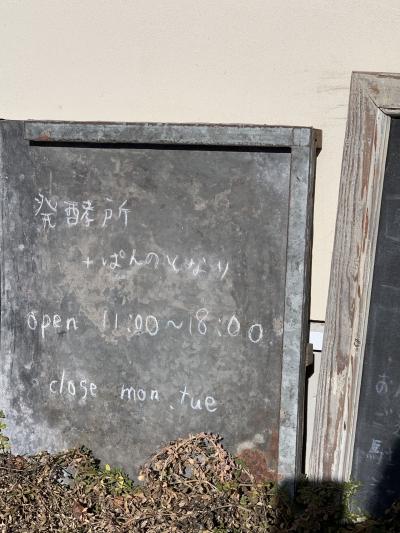 発酵所
+ぱんのとなり
open 11:00~18:00
close mon. tue